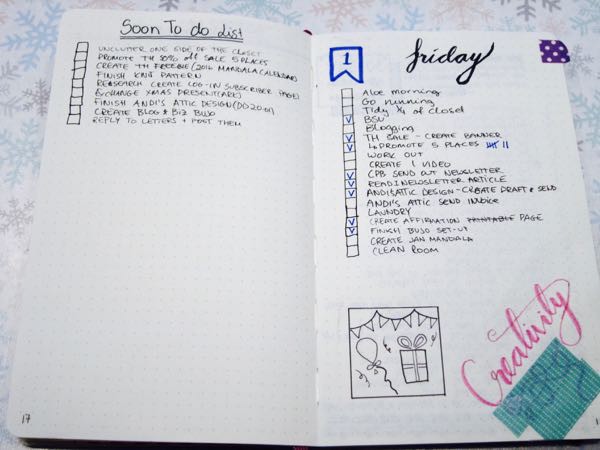 Soon To do List
UNCLUTTER ONE SIDE OF THE CLOSET
PROMOTE TH 50% off SALE 5 PLACES
CREATE TH FREEBIE (2016 MANDALA CALENDAR)
FINISH KNIT PATTERN
RESEARCH CREATE LOG-IN SUBSCRIBER PAGE
EXCHANGE XMAS PRESENT (ARK)
FINISH ANDI'S ATTIC DESIGN
CREATE BLOG & BIZ BUJO
REPLY TO LETTERS + POST THEM
17
1
friday
Aloe morning
Go running
Tidy ¼ of closet
BSU
Blogging
TH SALE - CREATE BANNER
PROMOTE 5 PLACES
WORK OUT
CREATE 1 VIDEO
CPB SEND OUT NEWSLETTER
READ 1 NEWSLETTER ARTICLE
ANDI'S ATTIC DESIGN - CREATE DRAFT & SEND
ANDI'S ATTIC SEND INVOICE
LAUNDRY
CREATE AFFIRMATION PRINTABLE PAGE
FINISH BUJO SET-UP
CREATE JAN MANDALA
CLEAN ROOM
Creativity